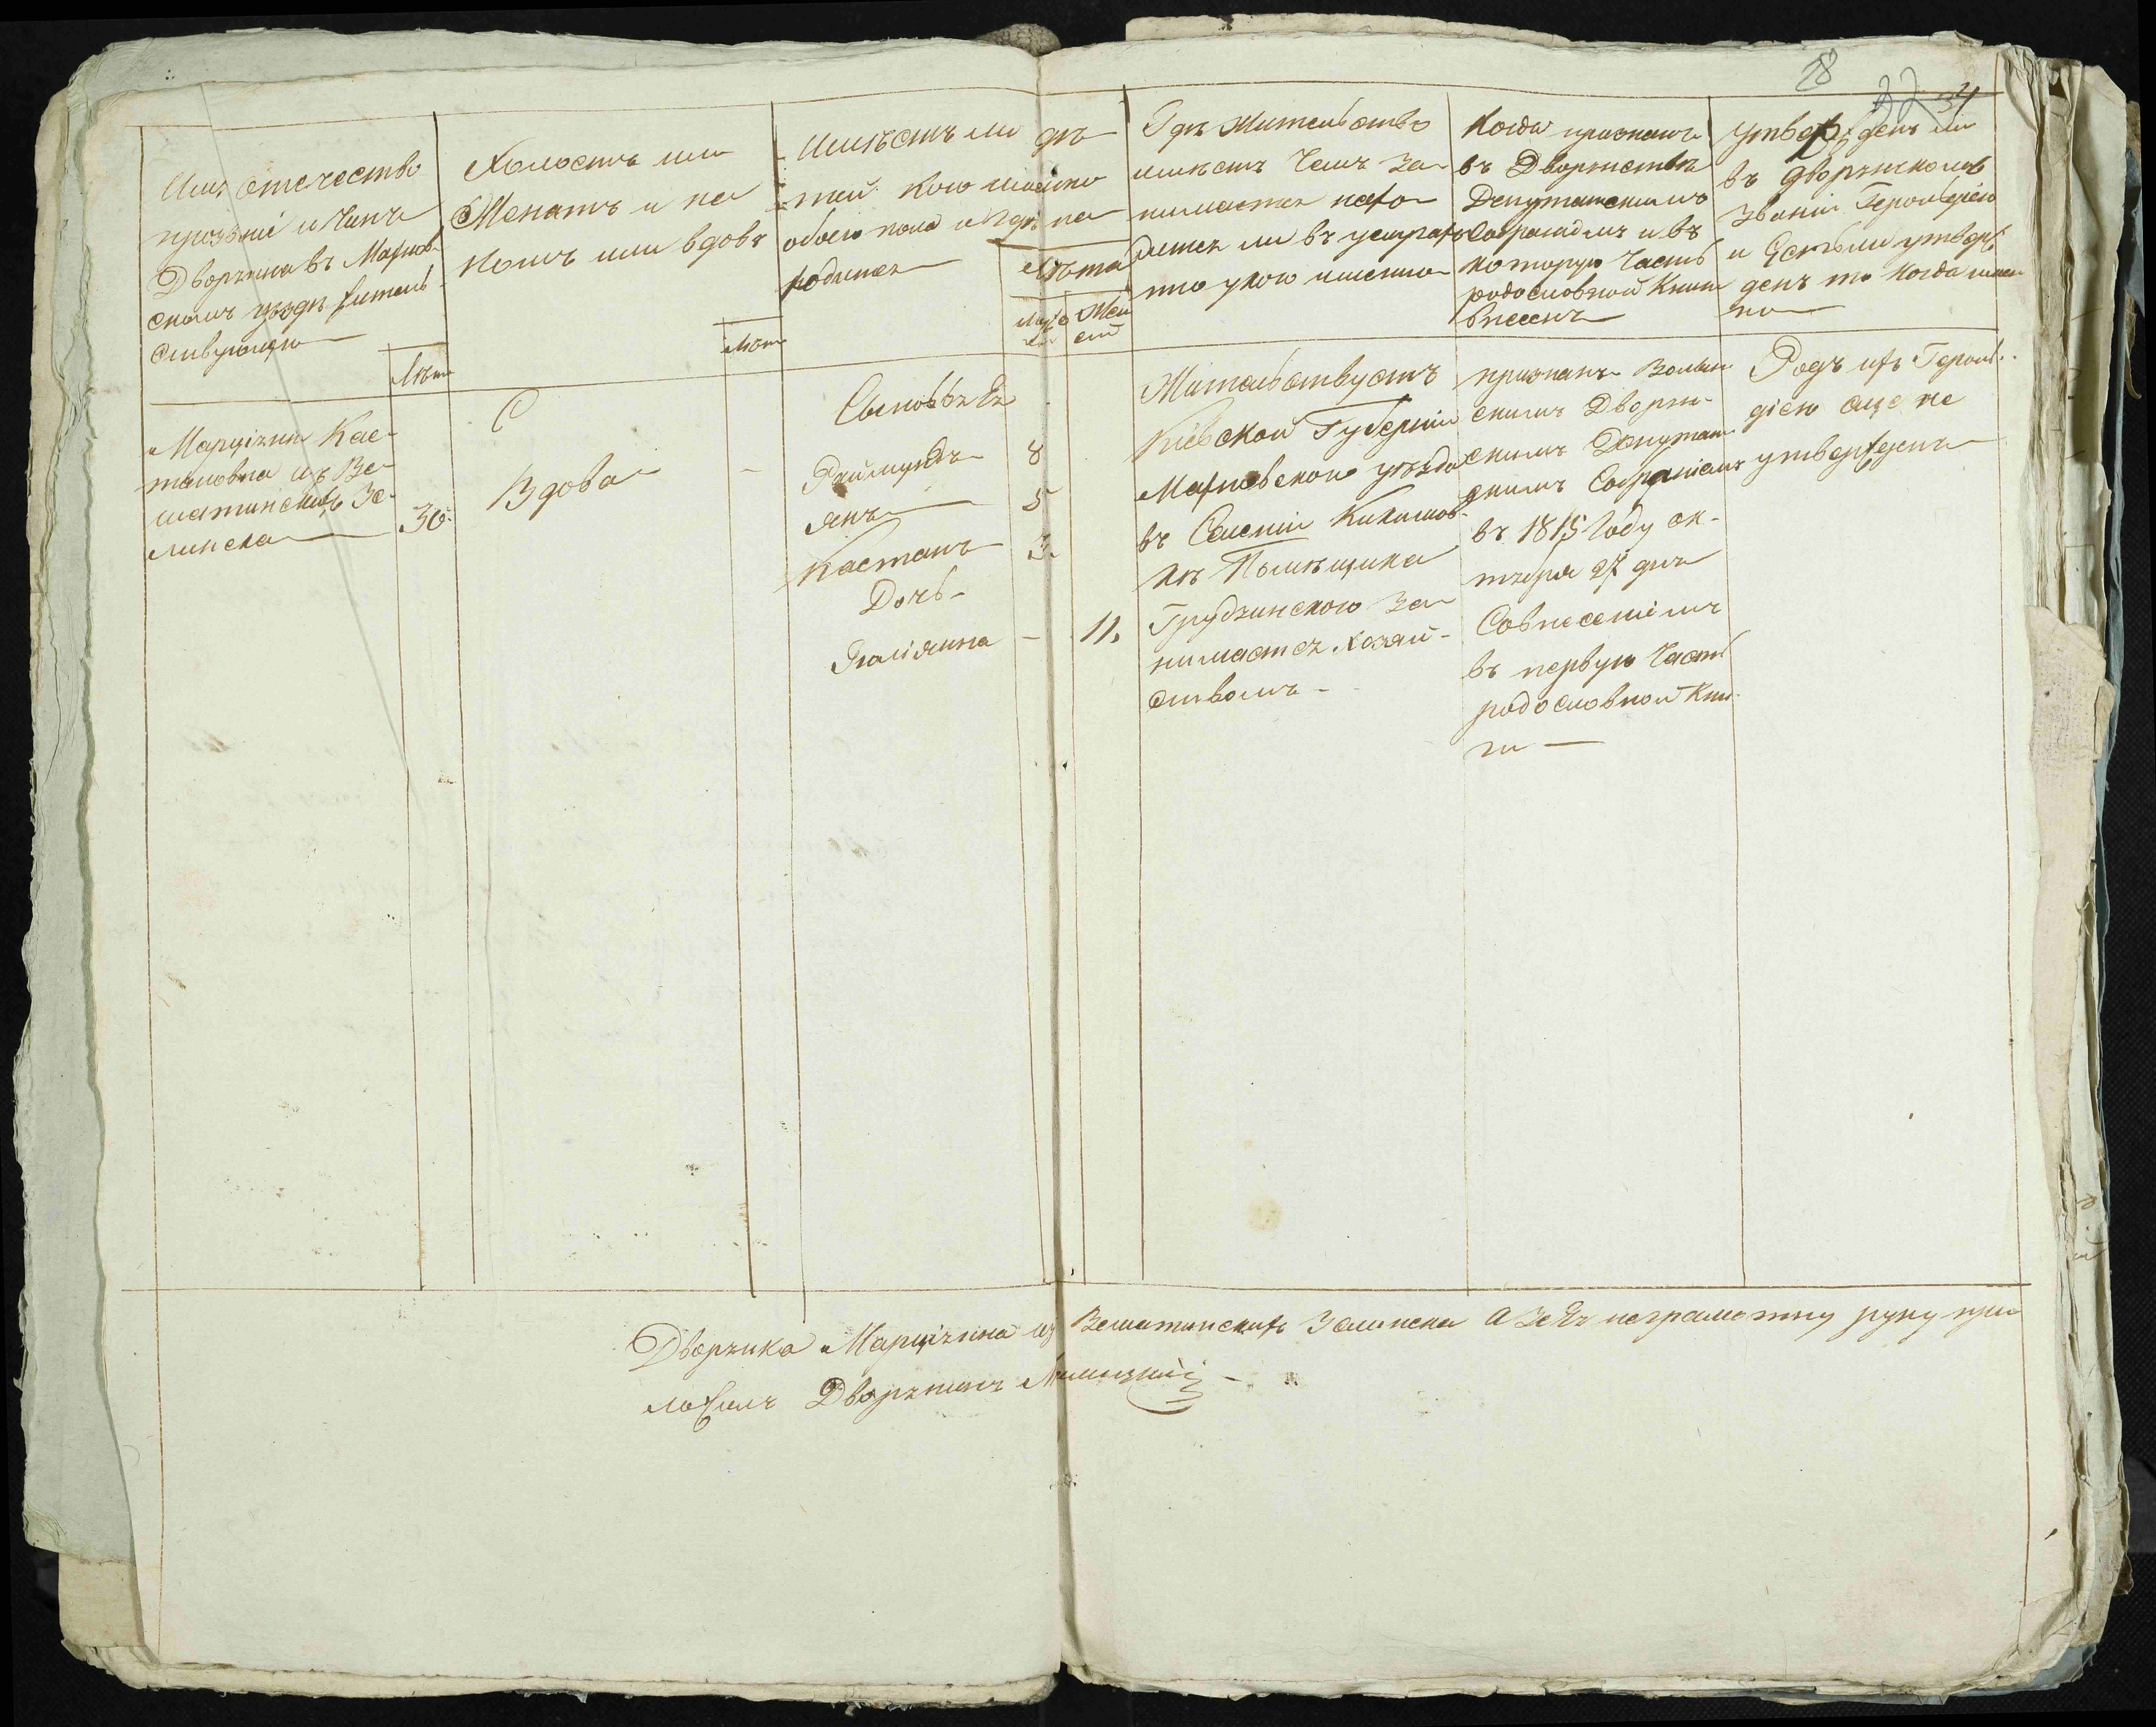 28
22 34
Имя отечество
прозвание и Чинъ
Дворянина въ Махнов-
скомъ уезде жител-
ствующаго
Лета
Холостъ или
Женатъ и на
комъ или вдовъ
Лета
Имеетъ ли де-
тей кого имянно
обоего пола и где на-
ходятся
Лета
Муж Жен
ска ска
Где Жительство
имеетъ Чемъ за-
нимается нахо-
дится ли въ услугахъ
и у кого имянно
Когда признанъ
въ Дворянстве
Депутатскимъ
Собраниемъ и въ
которую Часть
родословной Книги
внесенъ
утвержденъ ли
въ дворянскомъ
звании Герольдиею
и Естьли утверж-
денъ то Когда имян-
но
Марціянна Кае-
тановна изъ Ве-
шатинскихъ Зе-
линска
30.
Вдова
-
Сыновья Ея
Раймундъ 8
Янъ 5
Каетанъ 3.
Дочь
- 11.
Жительствуетъ
Кіевской Губерніи
Махновского уезда
въ Селеніи
Помещика
Грудзинского За-
нимается Хозяй-
ствомъ -
признанъ Волын-
скимъ Дворян-
скимъ Депутат-
скимъ Собраніемъ
въ 1815 Году ок-
тября 27 дня
Совнесеніемъ
въ первую Часть
родословной Кни-
ги —
Родъ ихъ Героль-
діею еще не
утвержденъ
Дворянка Марціянна изъ Вешатинскихъ Зелинска А За Ея неграмотну руку при-
ложилъ Дворянинъ